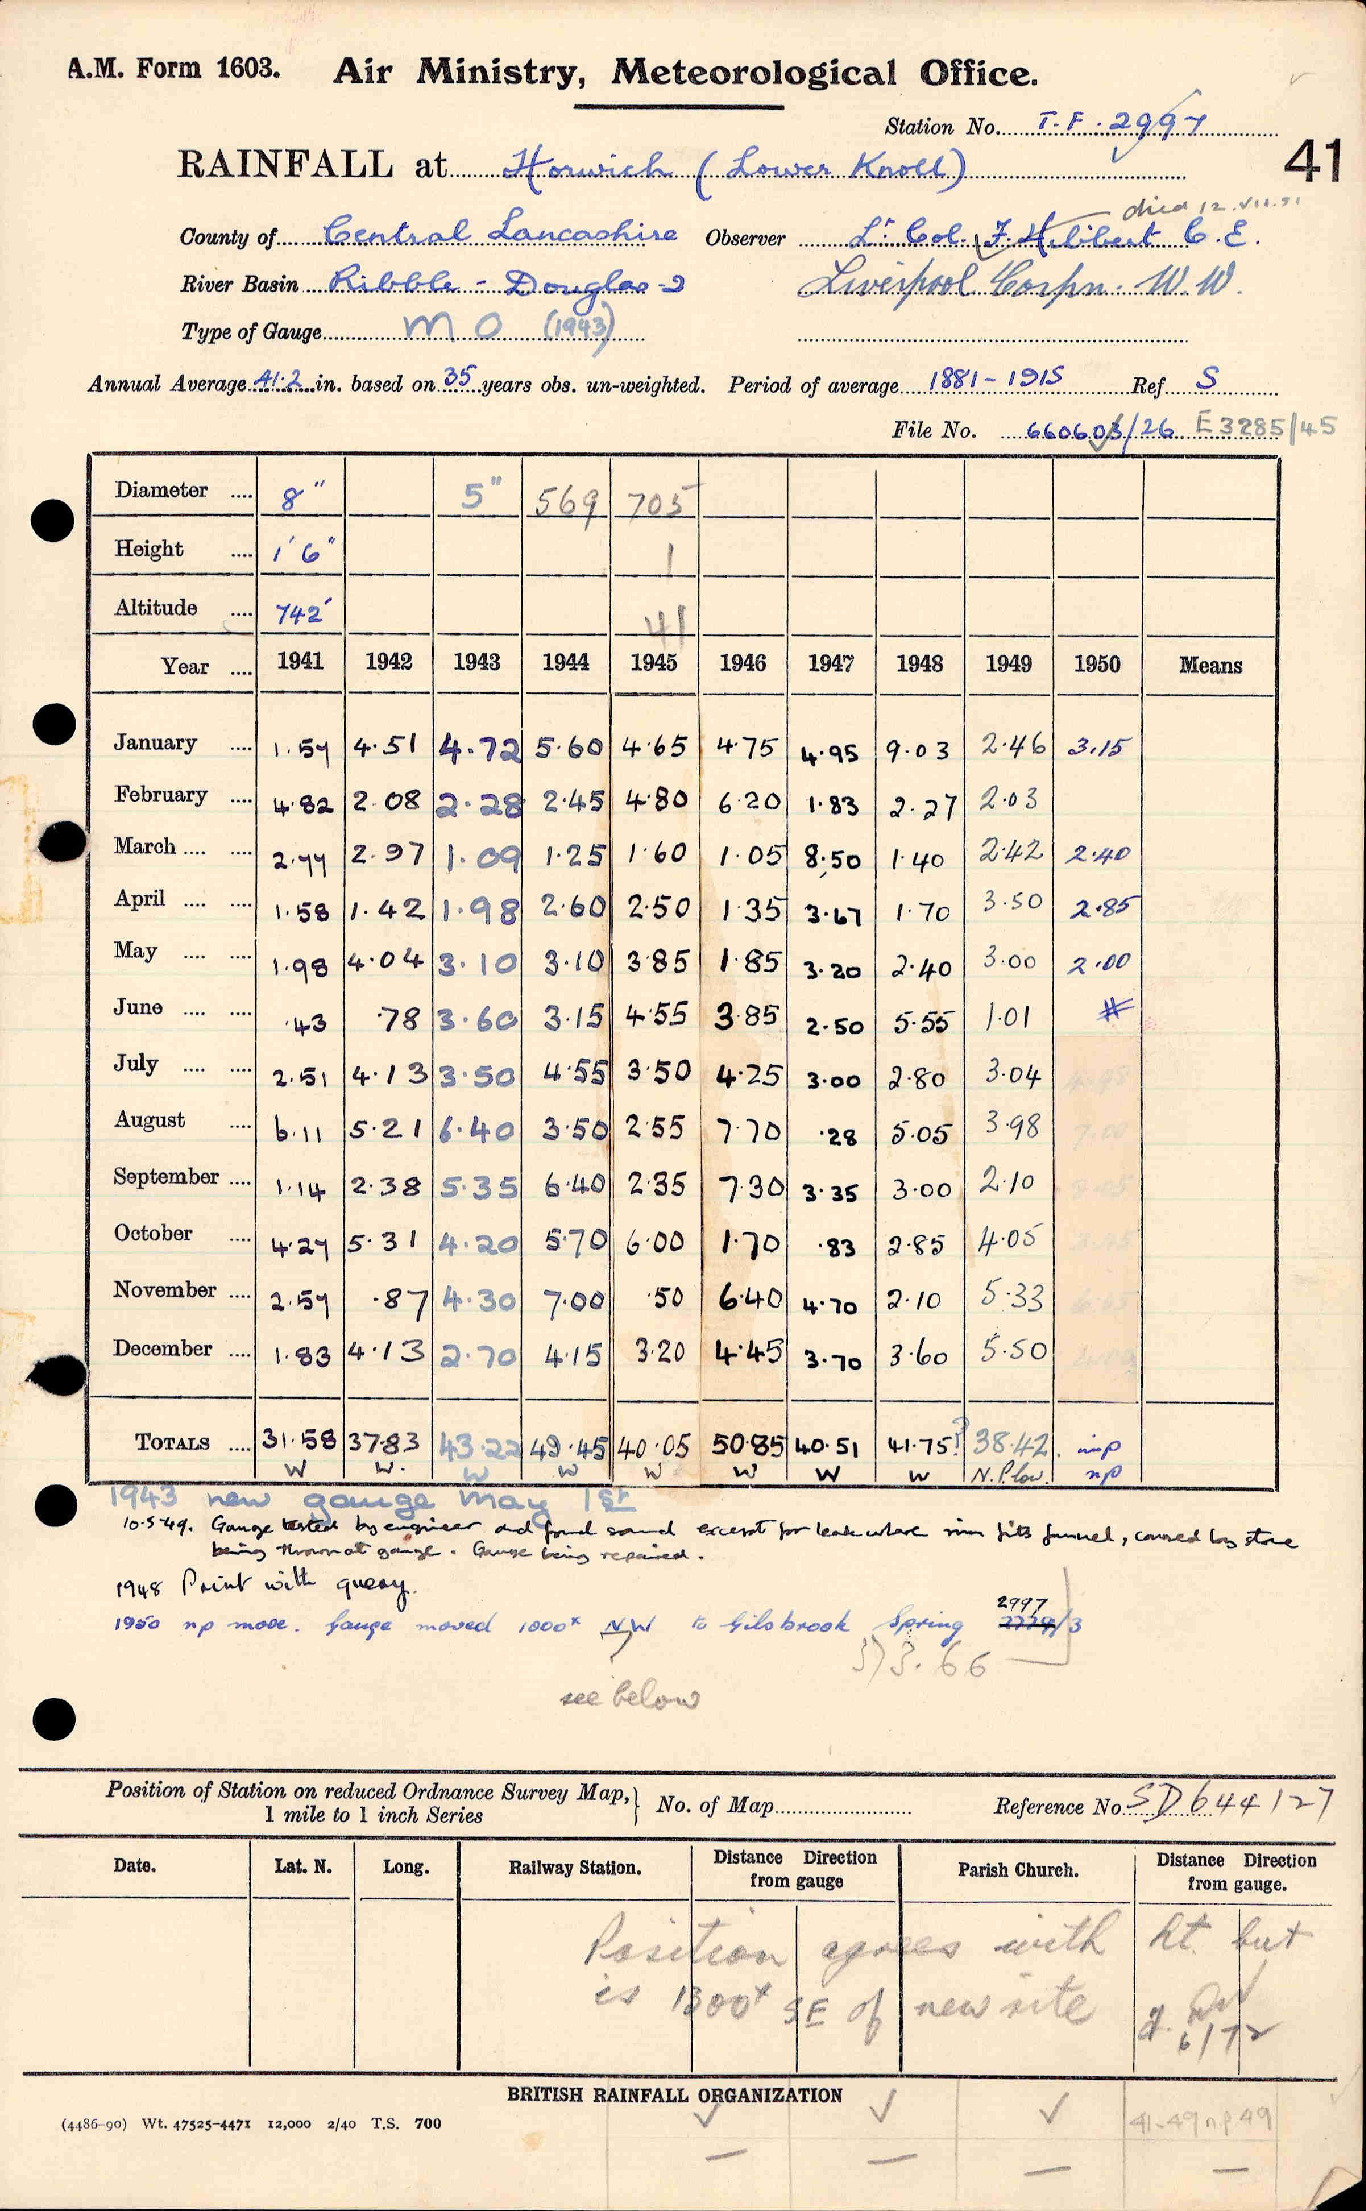 A.M. Form 1603. Air Ministry, Meteorological Office.
Station No. T.F. 2997
41
RAINFALL at Horwich (Lower Knoll)
died 12.VII.51
County of Central Lancashire Observer Lt. Col. F. Hibbert C.E.
River Basin Ribble - Douglas-2 Liverpool Corpn. W.W.
Type of Gauge M O (1943)
Annual Average 41.2 in. based on 35 years obs. un-weighted. Period of average 1881-1915 Ref S
File No. 660603/26 E3285/45
Diameter .... 8" 5" 569 705
Height .... 1'6" 1
Altitude .... 742' 41
Year .... 1941 1942 1943 1944 1945 1946 1947 1948 1949 1950 Means
January .... 1.57 4.51 4.72 5.60 4.65 4.75 4.95 9.03 2.46 3.15
February .... 4.82 2.08 2.28 2.45 4.80 6.20 1.83 2.27 2.03
March .... .... 2.77 2.97 1.09 1.25 1.60 1.05 8.50 1.40 2.42 2.40
April .... .... 1.58 1.42 1.98 2.60 2.50 1.35 3.67 1.70 3.50 2.85
May .... .... 1.98 4.04 3.10 3.10 3.85 1.85 3.20 2.40 3.00 2.00
June .... .... .43 .78 3.60 3.15 4.55 3.85 2.50 5.55 1.01 #
July .... .... 2.51 4.13 3.50 4.55 3.50 4.25 3.00 2.80 3.04
August .... 6.11 5.21 6.40 3.50 2.55 7.70 .28 5.05 3.98
September .... 1.14 2.38 5.35 6.40 2.35 7.30 3.35 3.00 2.10
October .... 4.27 5.31 4.20 5.70 6.00 1.70 .83 2.85 4.05
November .... 2.57 .87 4.30 7.00 .50 6.40 4.70 2.10 5.33
December .... 1.83 4.13 2.70 4.15 3.20 4.45 3.70 3.60 5.50
TOTALS .... 31.58 37.83 43.22 49.45 40.05 50.85 40.51 41.75? 38.42 imp
W W. W W W W W W N.P. low. np
1943 new gauge May 1st
10.5.49. Gauge tested by engineer and found sound except for leak where rim fits funnel, caused by stone
being thrown at gauge. Gauge being repaired.
1948 Print with query.
2997
1950 np more. Gauge moved 1000x NW to Gilsbrook Spring /3
3.66
see below
Position of Station on reduced Ordnance Survey Map, 1 mile to 1 inch Series } No. of Map Reference No. SD 644127
Date. Lat. N. Long. Railway Station. Distance Direction from gauge Parish Church. Distance Direction from gauge.
Position agrees with ht. but
is 1300x SE of new site
6/72
BRITISH RAINFALL ORGANIZATION
(4486-90) Wt. 47525-4471 12,000 2/40 T.S. 700
41-49 np 49